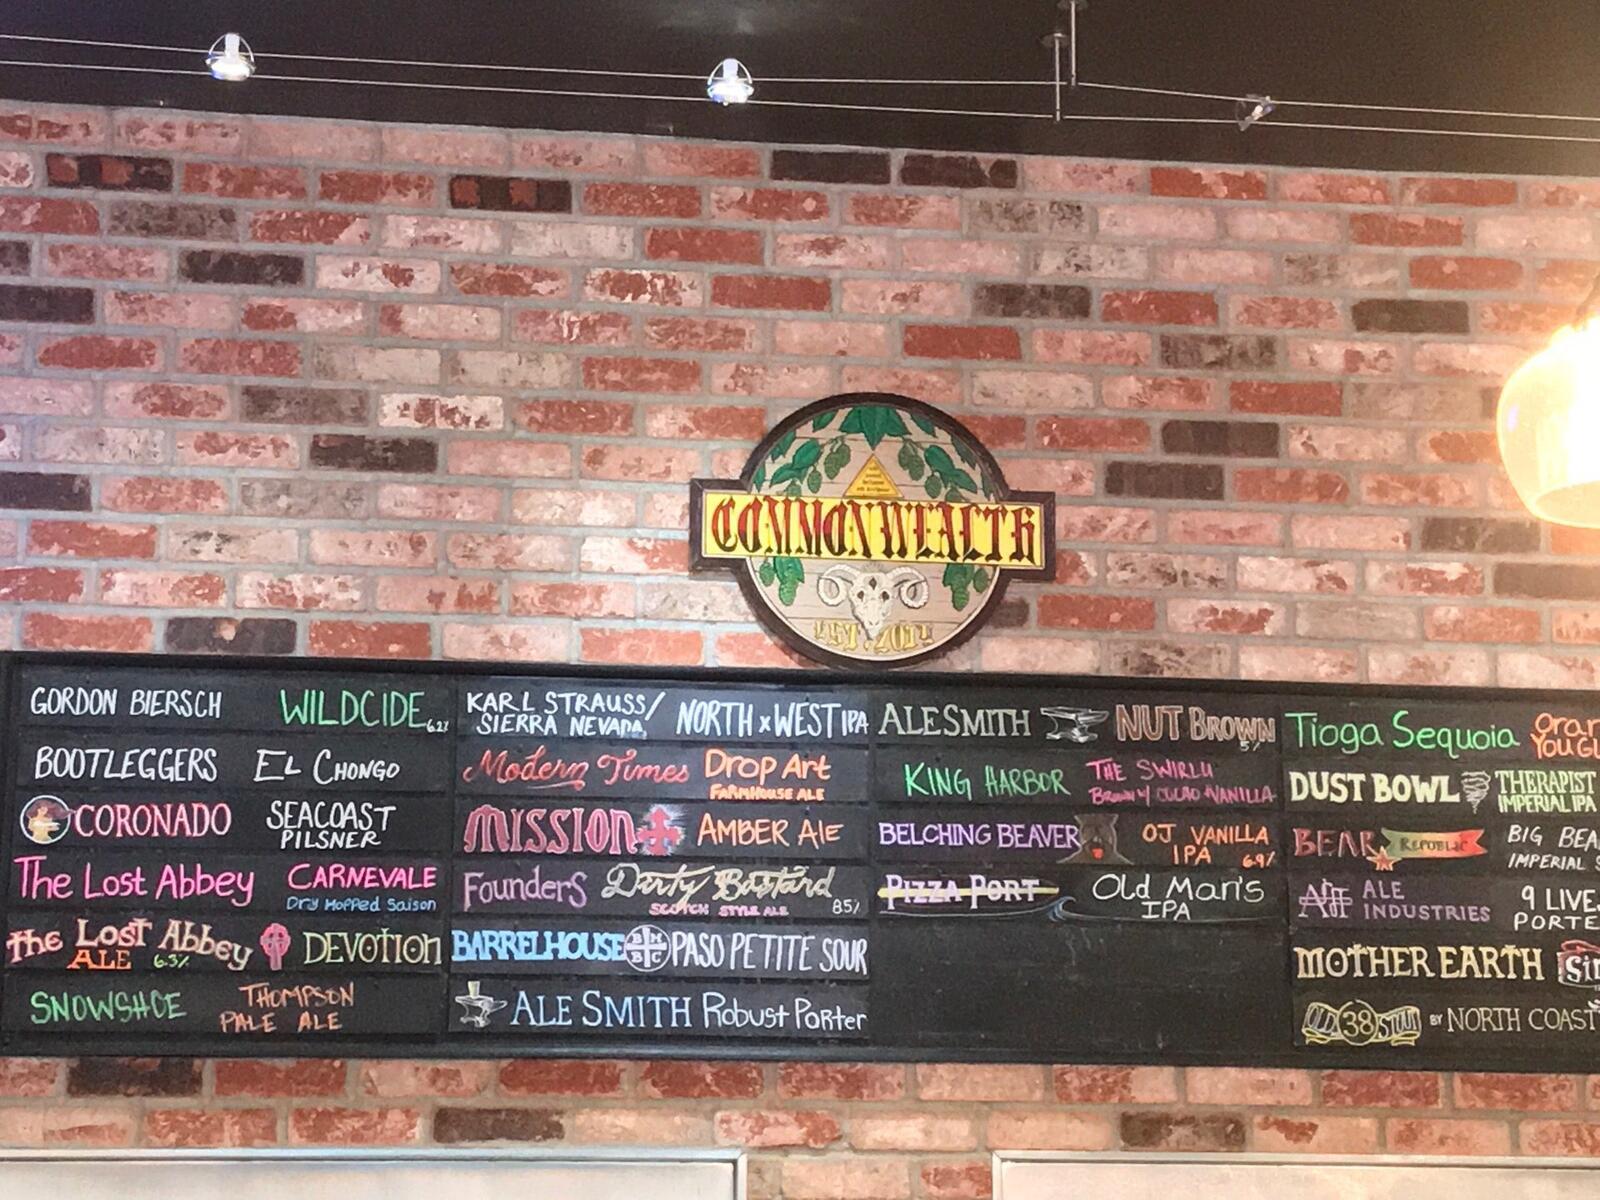 COMMONWEALTH
EST. 2011
GORDON BIERSCH WILDCIDE 6.2%
BOOTLEGGERS EL CHONGO
CORONADO SEACOAST
PILSNER
The Lost Abbey CARNEVALE
Dry Hopped Saison
the Lost Abbey DEVOTION
ALE 6.3%
SNOWSHOE THOMPSON
PALE ALE
KARL STRAUSS/
SIERRA NEVADA NORTH x WEST IPA
Modern Times Drop Art
FARMHOUSE ALE
MISSION AMBER ALE
FounderS Dirty Bastard
SCOTCH STYLE ALE 8.5%
BARRELHOUSE BHBC PASO PETITE SOUR
ALE SMITH Robust Porter
ALESMITH NUT BROWN
5%
KING HARBOR THE SWIRLY
BROWN w/ CACAO + VANILLA
BELCHING BEAVER OJ VANILLA
IPA 6.9%
PIZZA PORT Old Man's
IPA
Tioga Sequoia Oran
YOU GU
DUST BOWL THERAPIST
IMPERIAL IPA
BEAR REPUBLIC BIG BEA
IMPERIAL S
ALE
INDUSTRIES 9 LIVE
PORTE
MOTHER EARTH Sin
OLD 38 STOUT BY NORTH COAST